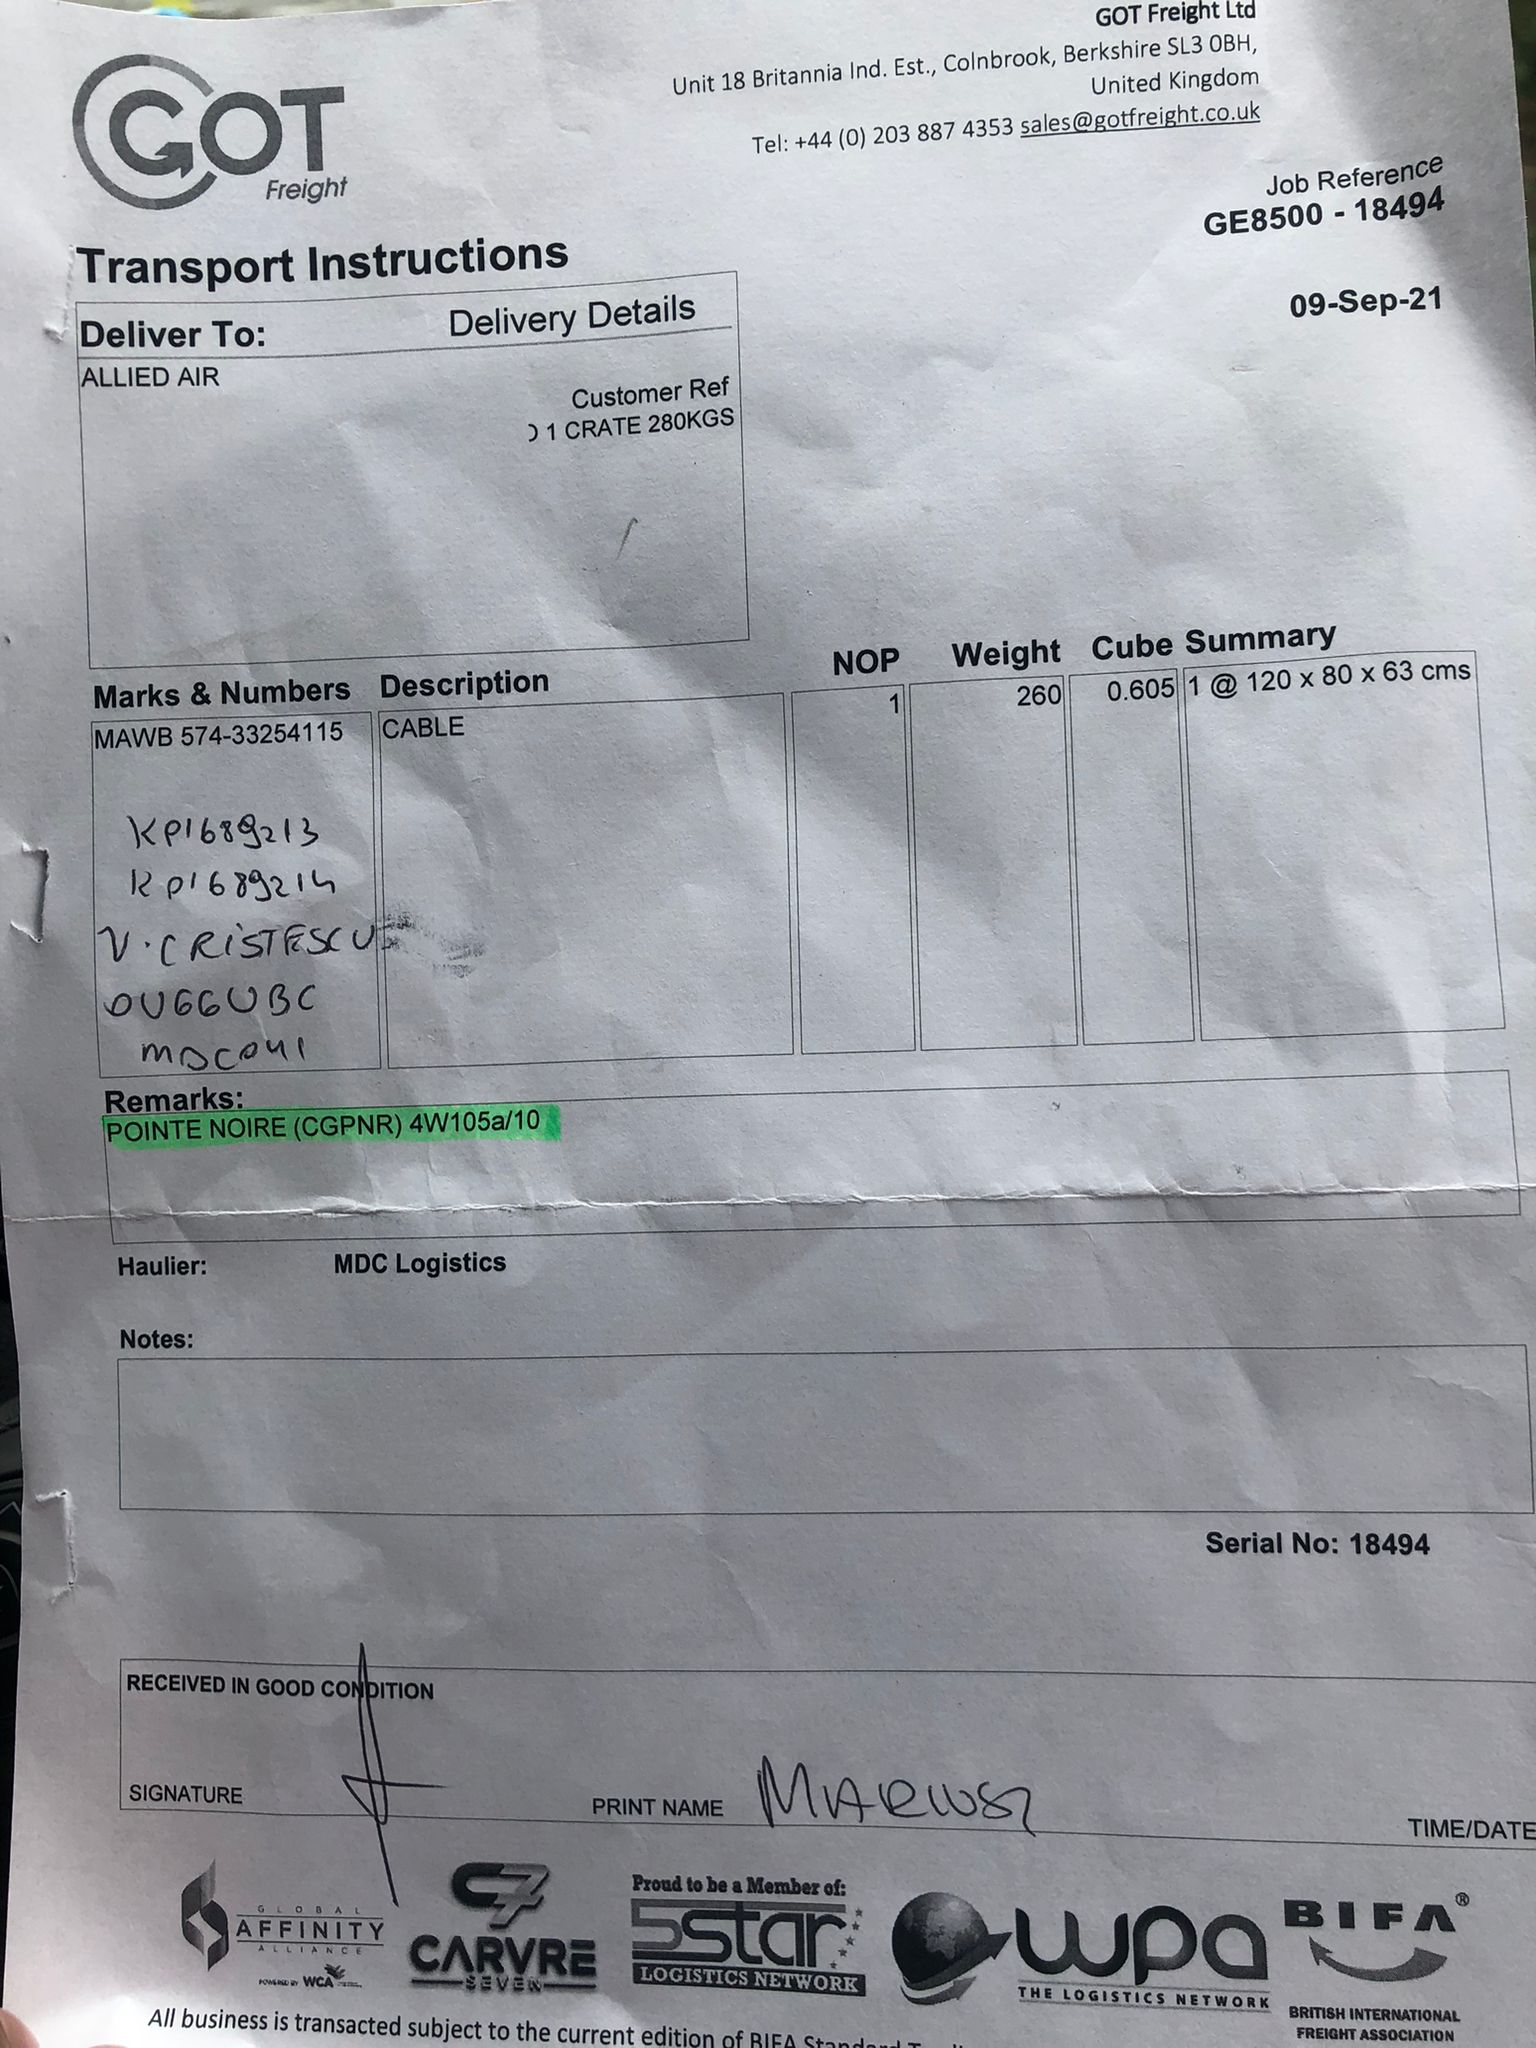 GOT
Freight
GOT Freight Ltd
Unit 18 Britannia Ind. Est., Colnbrook, Berkshire SL3 0BH,
United Kingdom
Tel: +44 (0) 203 887 4353 sales@gotfreight.co.uk
Job Reference
GE8500 - 18494
09-Sep-21
Transport Instructions
Deliver To: Delivery Details
ALLIED AIR
Customer Ref
1 CRATE 280KGS
Marks & Numbers Description NOP Weight Cube Summary
MAWB 574-33254115 CABLE 1 260 0.605 1 @ 120 x 80 x 63 cms
KP1689213
KP1689214
V. CRISTESCU
OU66UBC
MDC041
Remarks:
POINTE NOIRE (CGPNR) 4W105a/10
Haulier: MDC Logistics
Notes:
Serial No: 18494
RECEIVED IN GOOD CONDITION
SIGNATURE PRINT NAME MARIUSZ TIME/DATE
GLOBAL
AFFINITY
ALLIANCE
POWERED BY WCA
C7
CARVRE
SEVEN
Proud to be a Member of:
5star
LOGISTICS NETWORK
wpa
THE LOGISTICS NETWORK
BIFA®
BRITISH INTERNATIONAL
FREIGHT ASSOCIATION
All business is transacted subject to the current edition of BIFA Standard